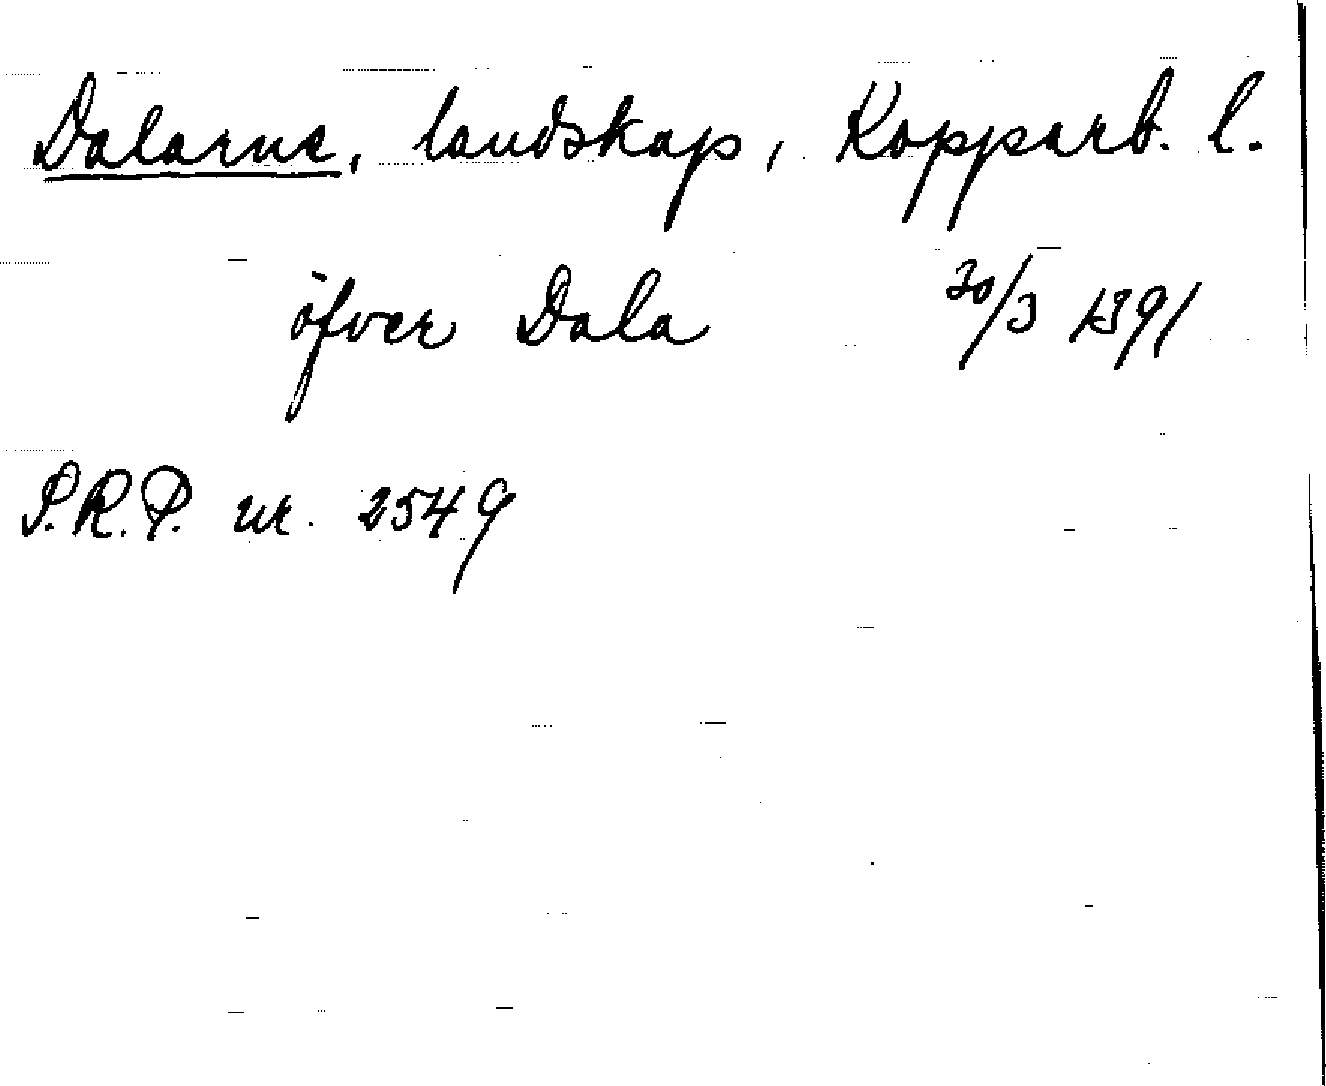 Dalarne, landskap, Kopparb. l.
öfver Dala 30/3 1391
S.R.P. nr. 2549